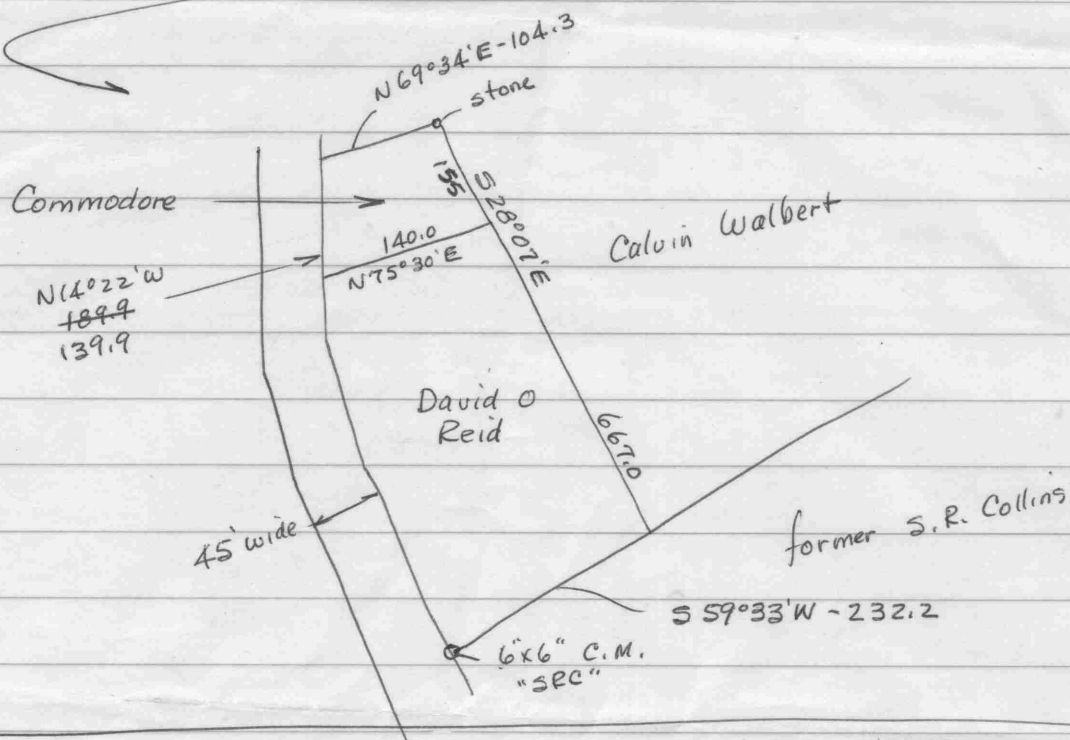 N 69°34'E - 104.3
stone
Commodore
155
S 28°07'E
Calvin Walbert
140.0
N 75°30'E
N 14°22'W
189.9
139.9
David O
Reid
667.0
45' wide
former S.R. Collins
S 59°33'W - 232.2
6"x6" C.M.
"SRC"